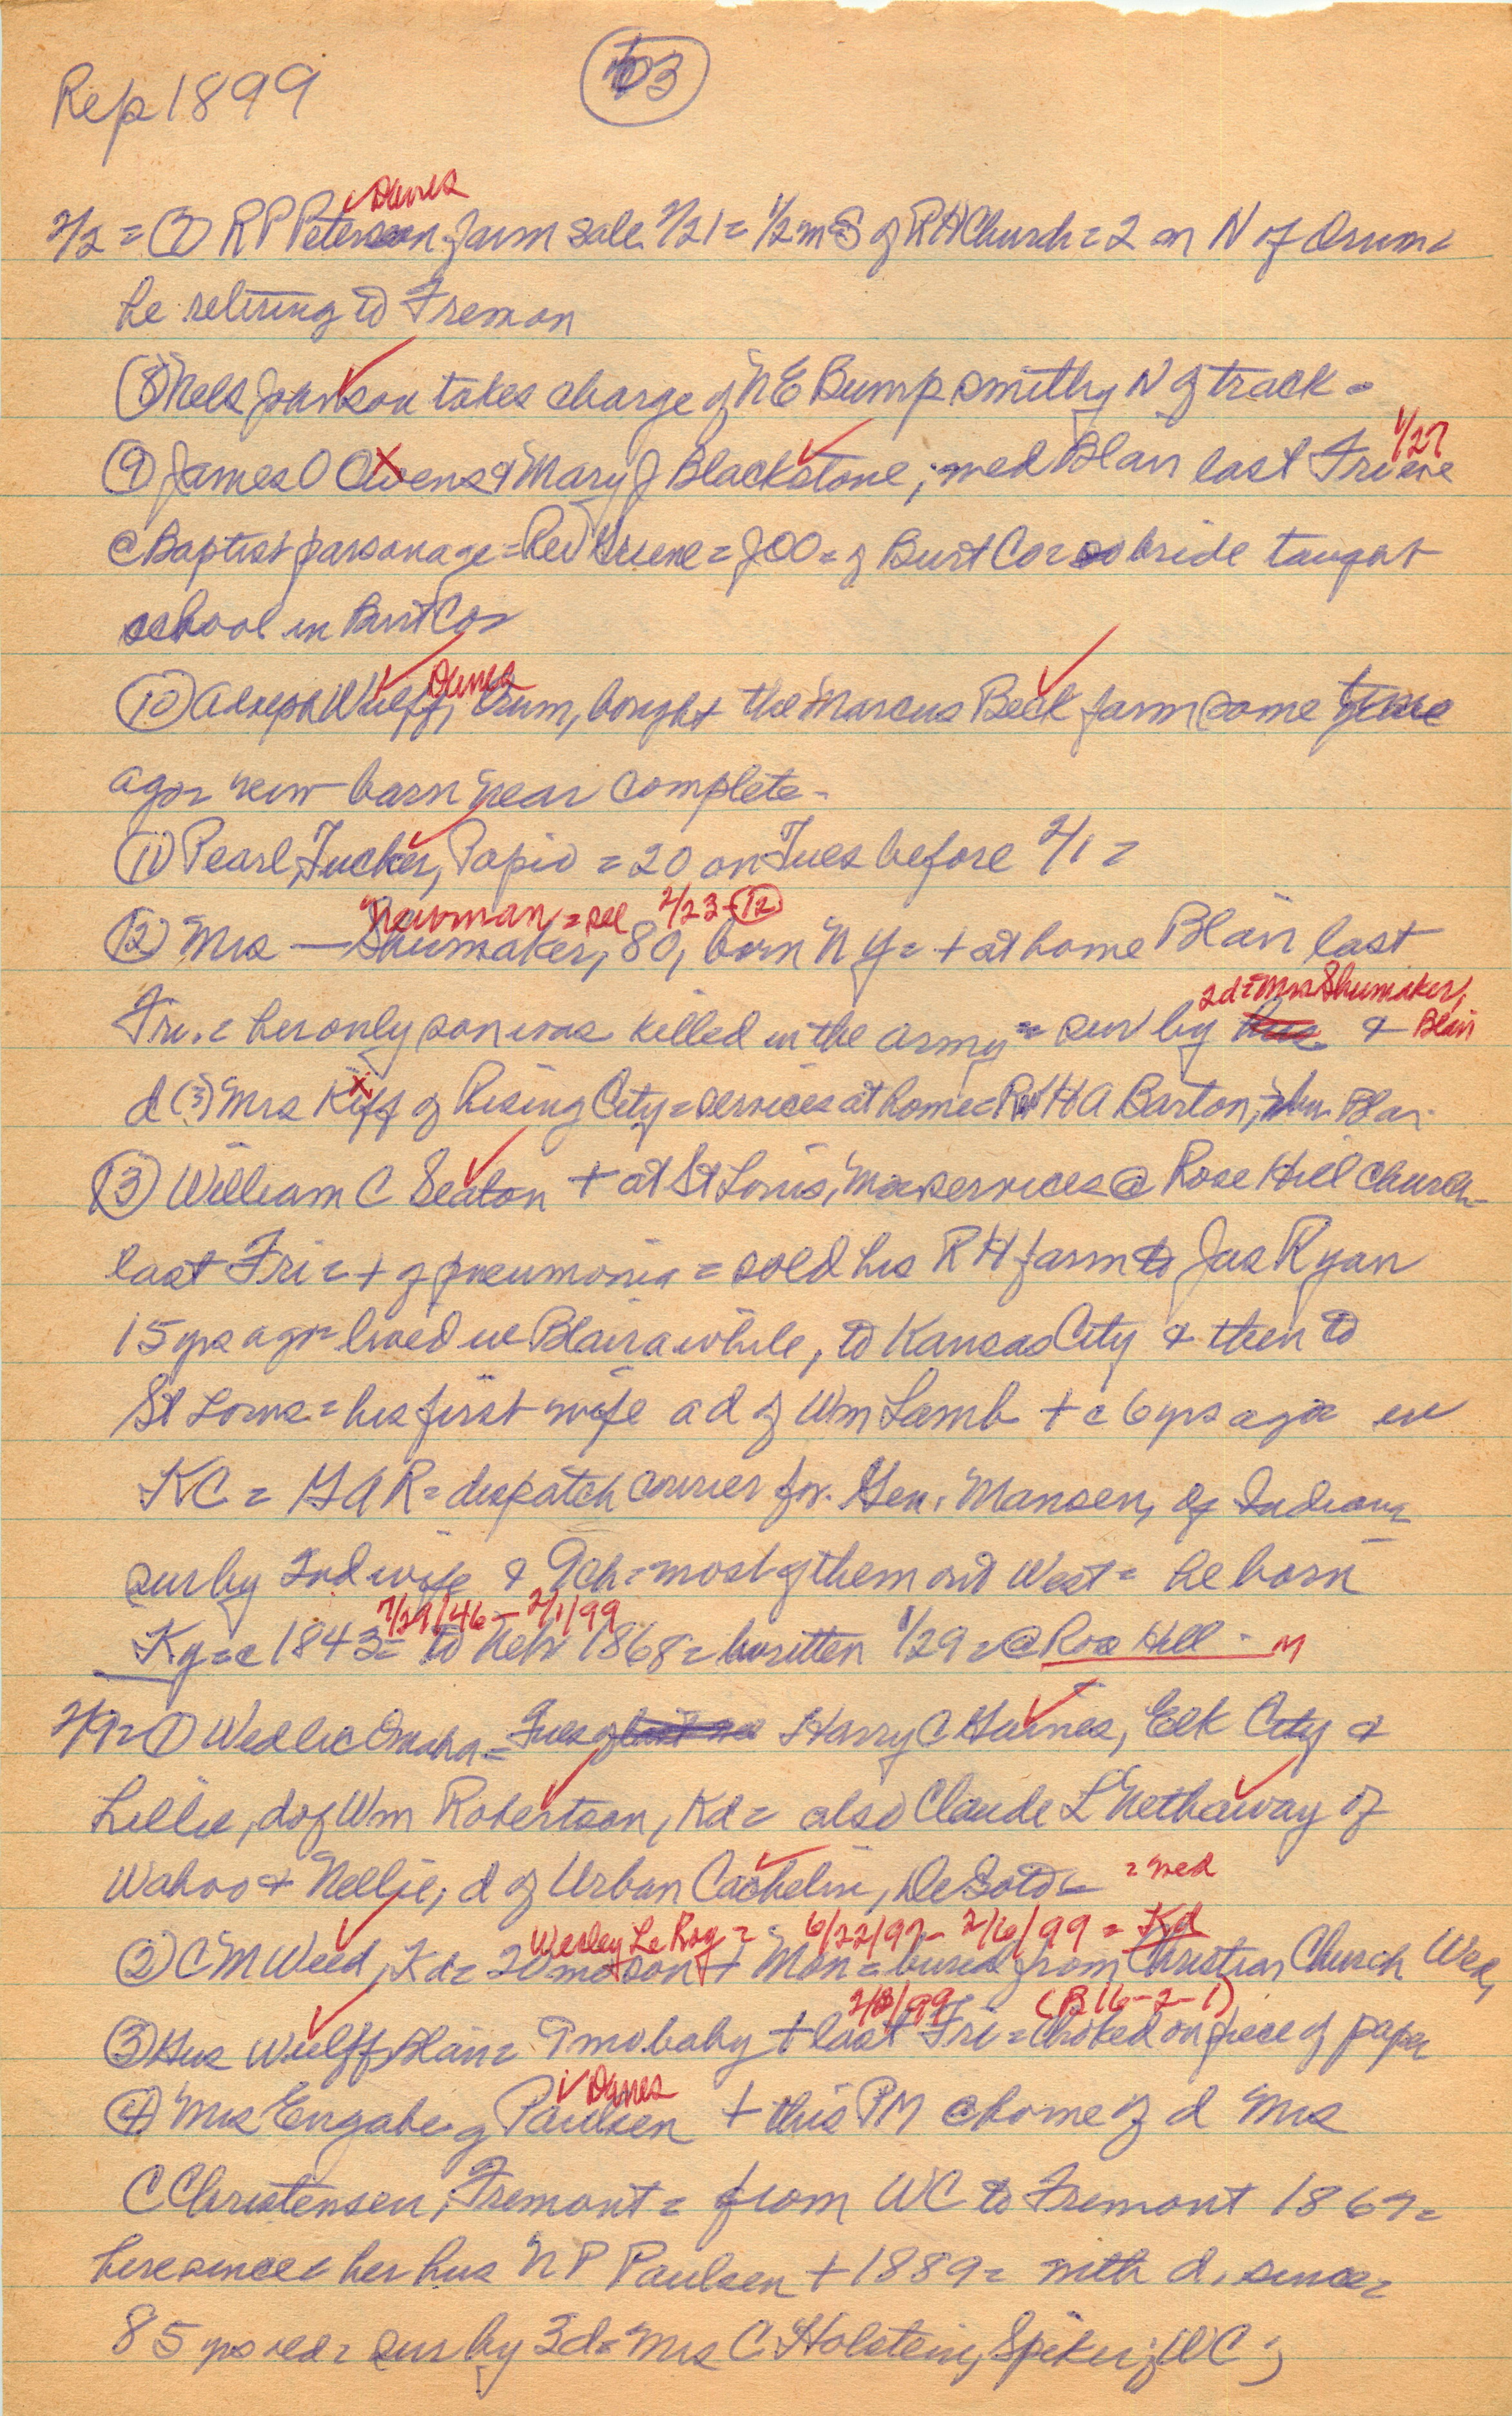 Rep 1899
103
✓ Danes
2/2 = (7) R P Peterson farm sale 2/21 = 1/2 m S of R H Church = 2 m N of Orum =
he retiring to Fremon
(8) Nels Johnson takes charge of N E Bump smithy N of track =
1/27
(9) James O Owens & Mary J Blackstone, med Blair last Fri eve
@ Baptist parsonage = Rev Greene = JOO = of Burt Co = bride taught
school in Burt Co =
Danes
(10) Adolph Wulff, Orum, bought the Marcus Beck farm some time
ago = new barn near complete =
(11) Pearl Tucker, Papio = 20 on Tues before 2/1 =
Newman = see 2/23 - (12)
(12) Mrs — Shumaker, 80, born N Y = + at home Blair last
2d = Mrs Shumaker, Blair
Fri. = her only son was killed in the army = sur by hus &
d (?) Mrs Kiff of Rising City = services at home = Rev H A Barton, Blair
(13) William C Seaton + at St Louis, Mo = services @ Rose Hill Church
last Fri = + of pneumonia = sold his R H farm to Jas Ryan
15 yrs ago = lived in Blair a while, to Kansas City & then to
St Louis = his first wife a d of Wm Lamb + c 6 yrs ago in
KC = GAR = dispatch courier for Gen. Mansen, of Indiana
sur by 2nd wife & 9 ch = most of them out West = he born
7/29/46 - 2/1/99
Ky = c 1843 = to Neb 1868 = written 1/29 = @ Rose Hill - M
2/9 = (1) Wed lic Omaha = Tues of Harry C Haines, Elk City &
Lillie, d of Wm Robertson, Kd = also Claude L Nethaway of
Wahoo & Nellie, d of Urban Cachelin, DeSoto = = med
Wesley LeRoy = 6/22/97 - 2/6/99 = Kd
(2) C M Weed, Kd = 20 mo son + Mon = buried from Christian Church Wed,
2/3/99 (B 16-2-1)
(3) Gus Wulff Blair = 9 mo baby + last Fri = choked on piece of paper
✓ Danes
(4) Mrs Engabeg Paulsen + this PM @ home of d Mrs
C Christensen, Fremont = from WC to Fremont 1869 =
here since = her hus N P Paulsen + 1889 = with d. since =
85 yrs old = sur by 3d = Mrs C Holstein, Spiker, of WC ;